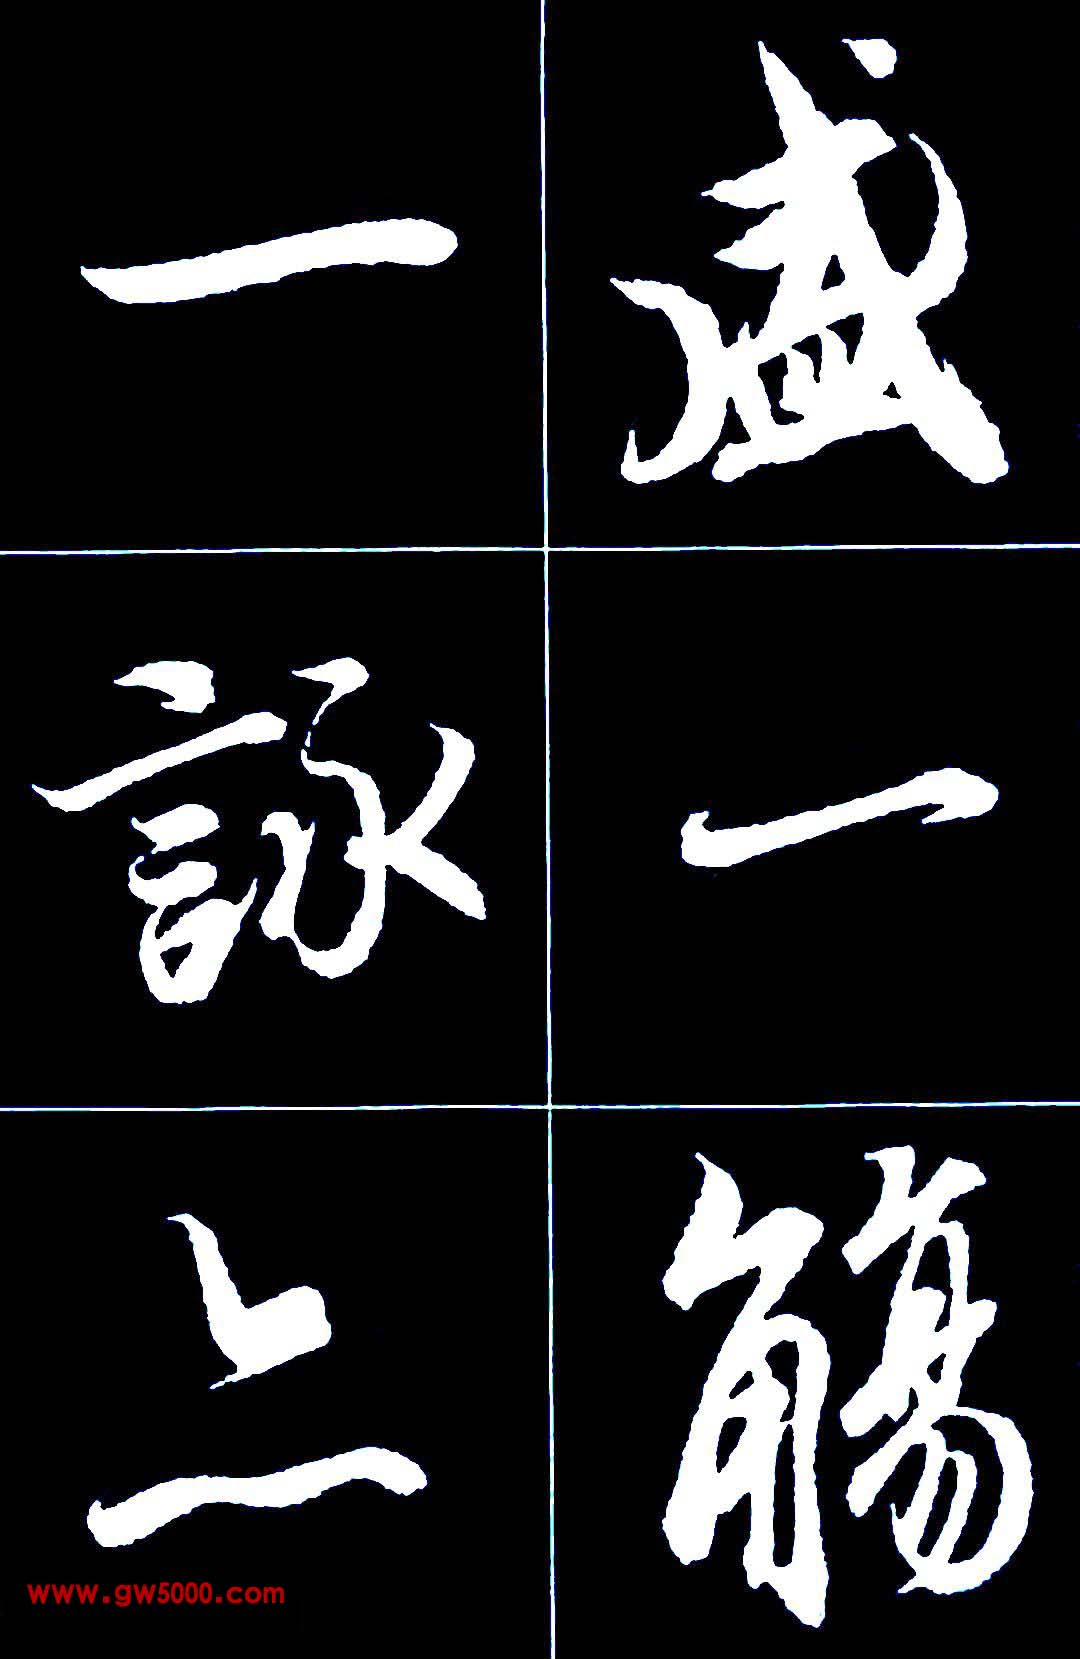 盛一觴
一詠上
www.gw5000.com